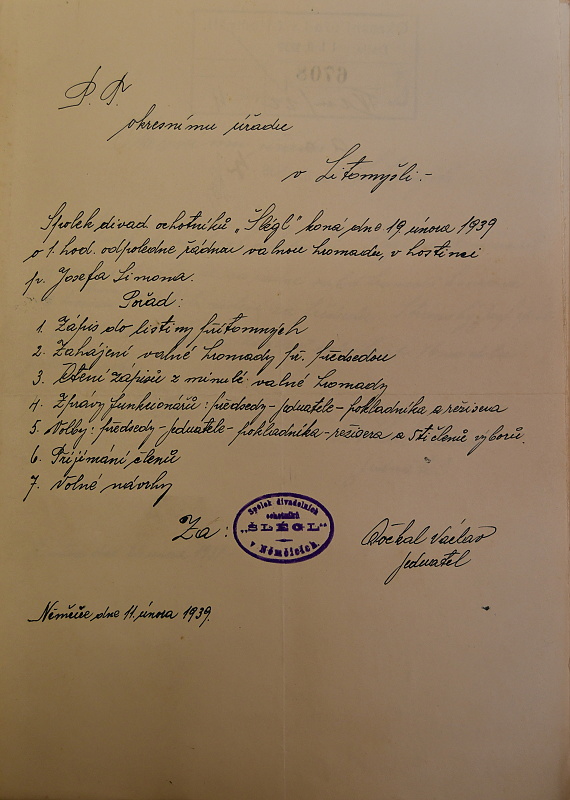 P. T.
okresnímu úřadu
v Litomyšli:-
Spolek divad. ochotníků „Šlégl" koná dne 19. února 1939
o 1. hod. odpoledne řádnou valnou hromadu, v hostinci
p. Josefa Simona.
Pořad:
1. Zápis do listiny přítomných
2. Zahájení valné hromady p. předsedou
3. Čtení zápisů z minulé valné hromady
4. Zprávy funkcionářů: předsedy-jednatele-pokladníka a režisera
5. Volby: předsedy-jednatele-pokladníka-režisera a 5ti členů výboru.
6. Přijímání členů
7. Volné návrhy
Za:
Spolek divadelních
ochotníků
„ŠLÉGL"
v Němčicích.
Václav
jednatel
Němčice dne 11. února 1939.
6705